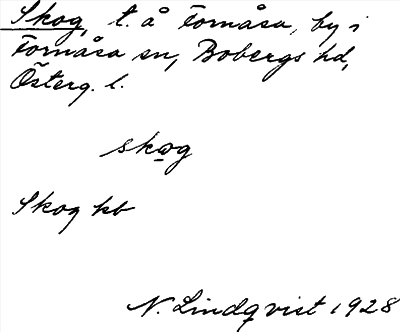 Skog, t. å Fornåsa, by i
Fornåsa sn, Bobergs hd,
Österg. l.
skog
Skog kb
N. Lindqvist 1928